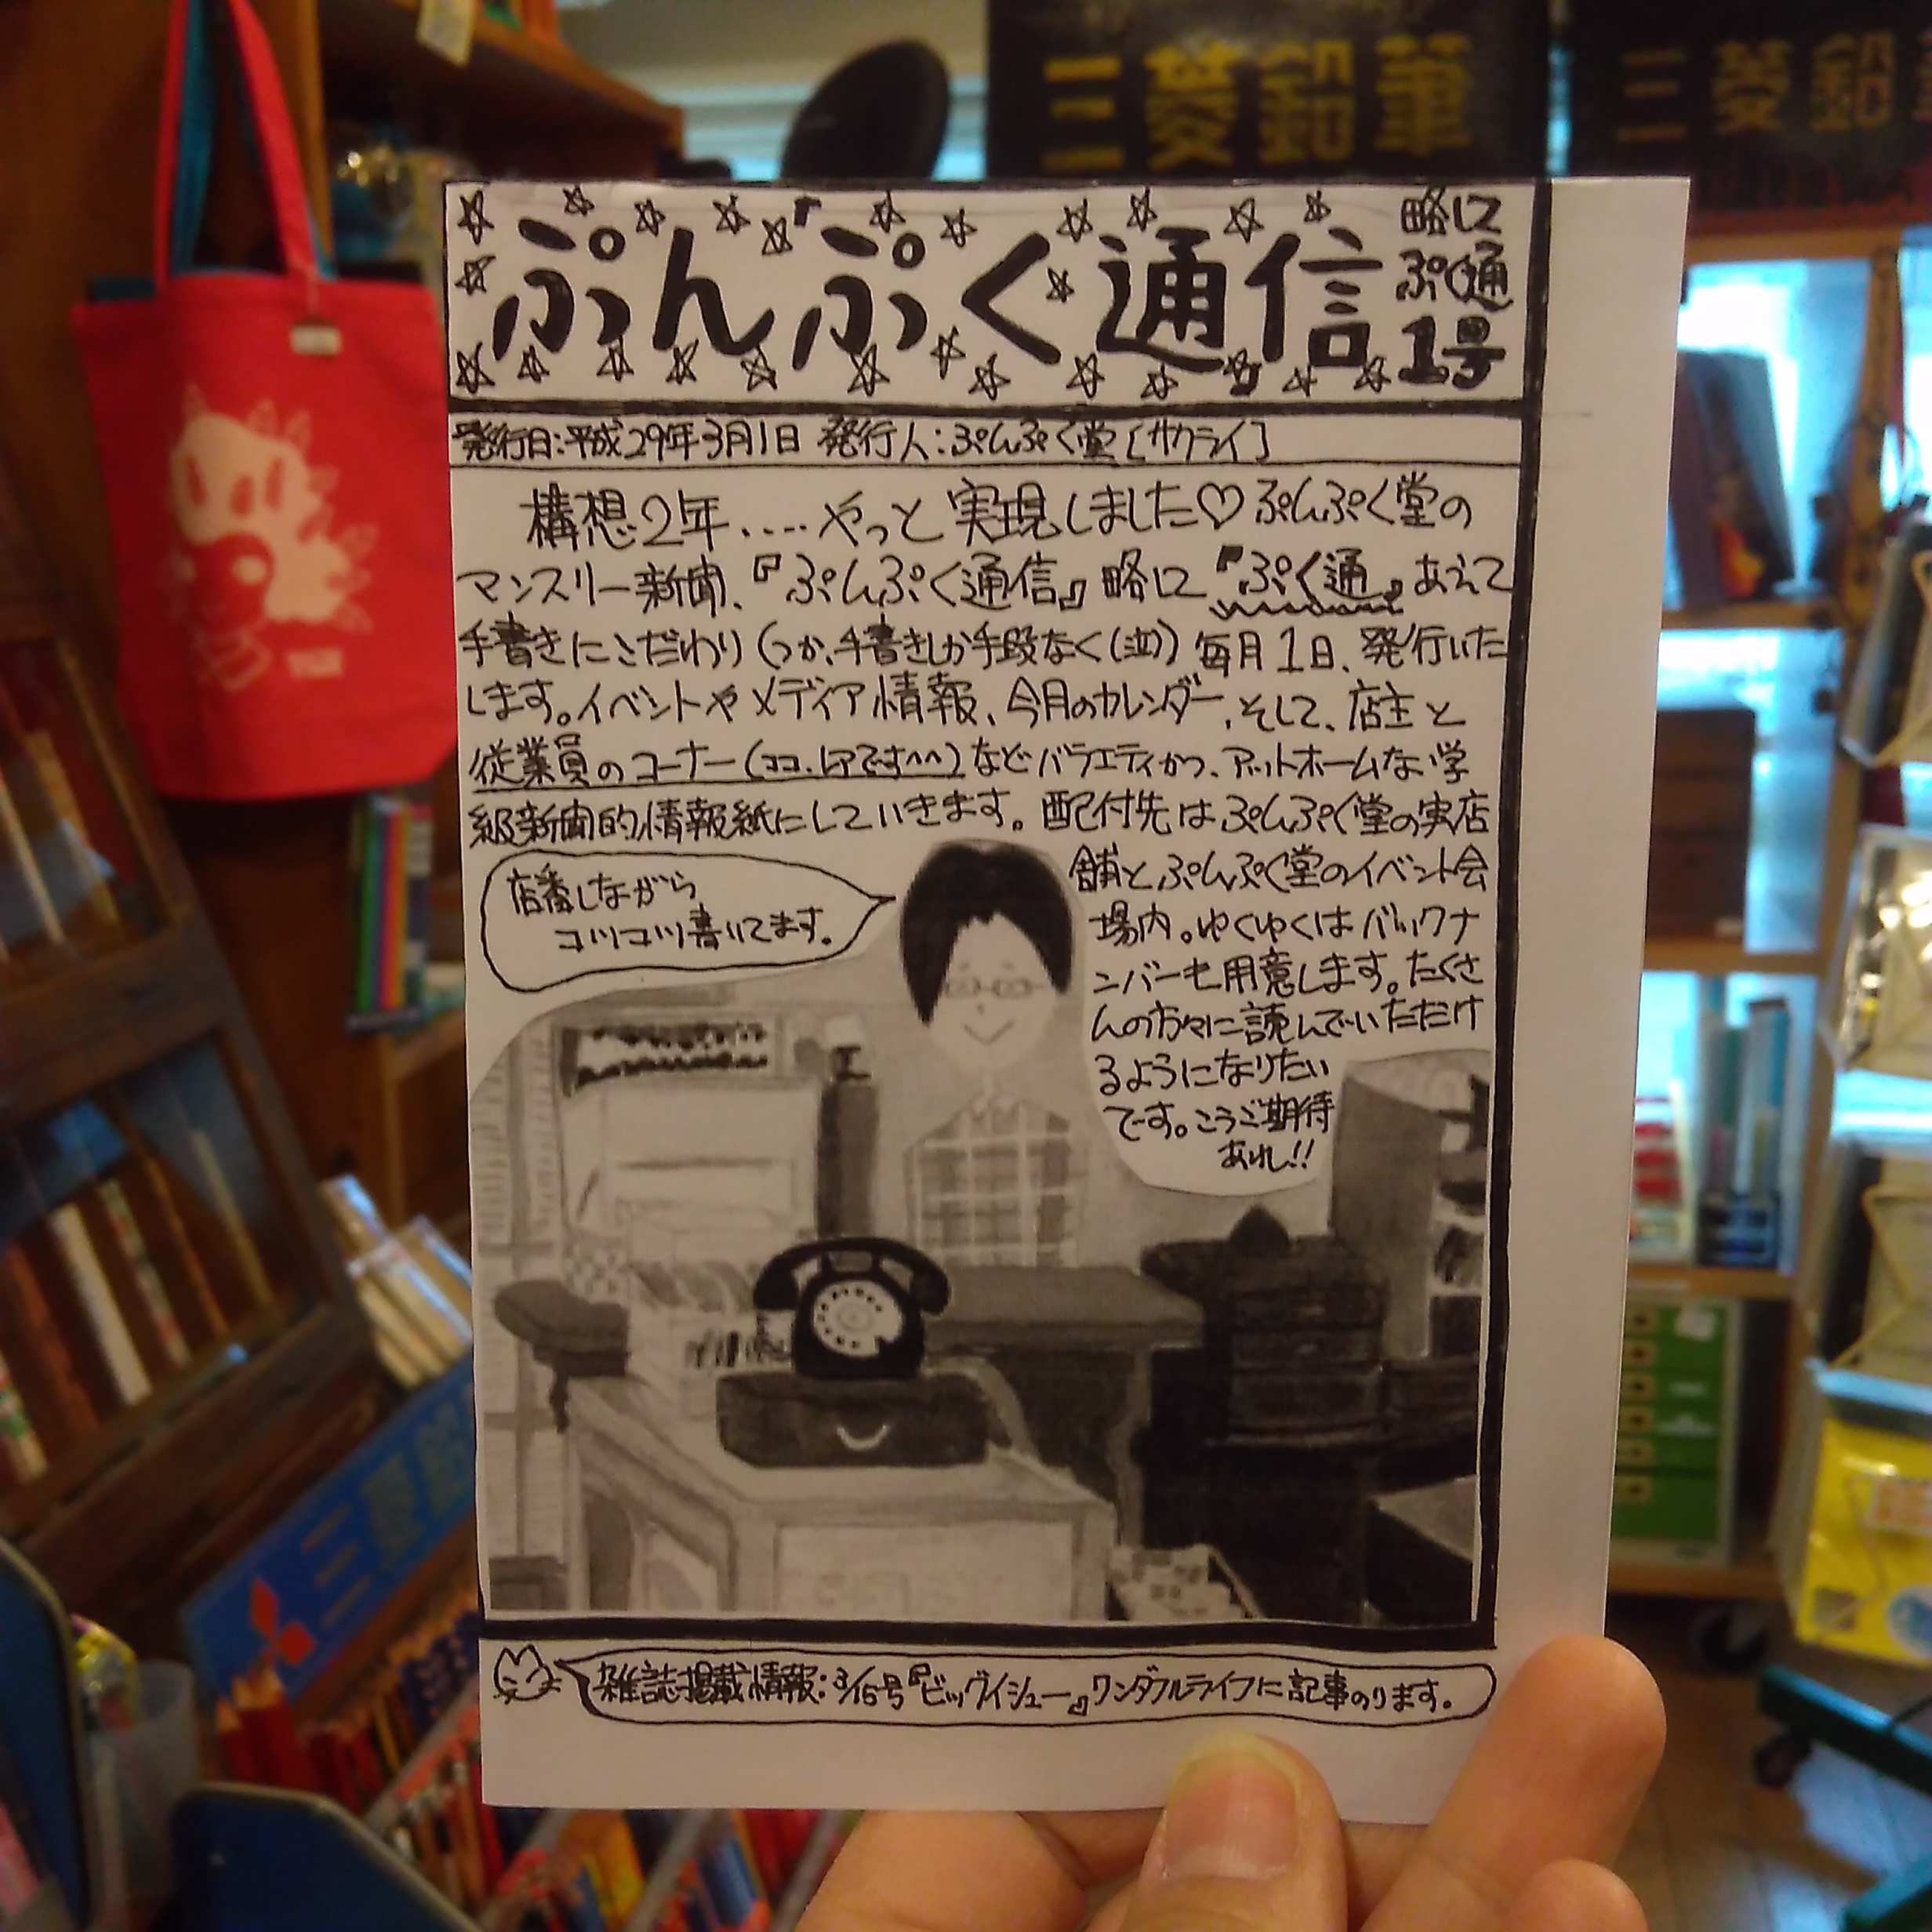 三菱鉛筆
三菱鉛筆
ぷんぷく通信
略に
ぷく通
1号
発行日:平成29年3月1日 発行人:ぷんぷく堂[サクライ]
構想2年....やっと実現しました♡ぷんぷく堂の
マンスリー新聞、『ぷんぷく通信』略に『ぷく通』あえて
手書きにこだわり(つか、手書きしか手段なく(泣))毎月1日、発行いた
します。イベントやメディア情報、今月のカレンダー、そして、店主と
従業員のコーナー(ココ、レアです^^)などバラエティかつ、アットホームな学
級新聞的情報紙にしていきます。配付先はぷんぷく堂の実店
舗とぷんぷく堂のイベント会
場内。ゆくゆくはバックナ
ンバーも用意します。たくさ
んの方々に読んでいただけ
るようになりたい
です。こうご期待
あれし!!
店番しながら
コツコツ書いてます。
雑誌掲載情報:3/15号『ビッグイシュー』ワンダフルライフに記事のります。